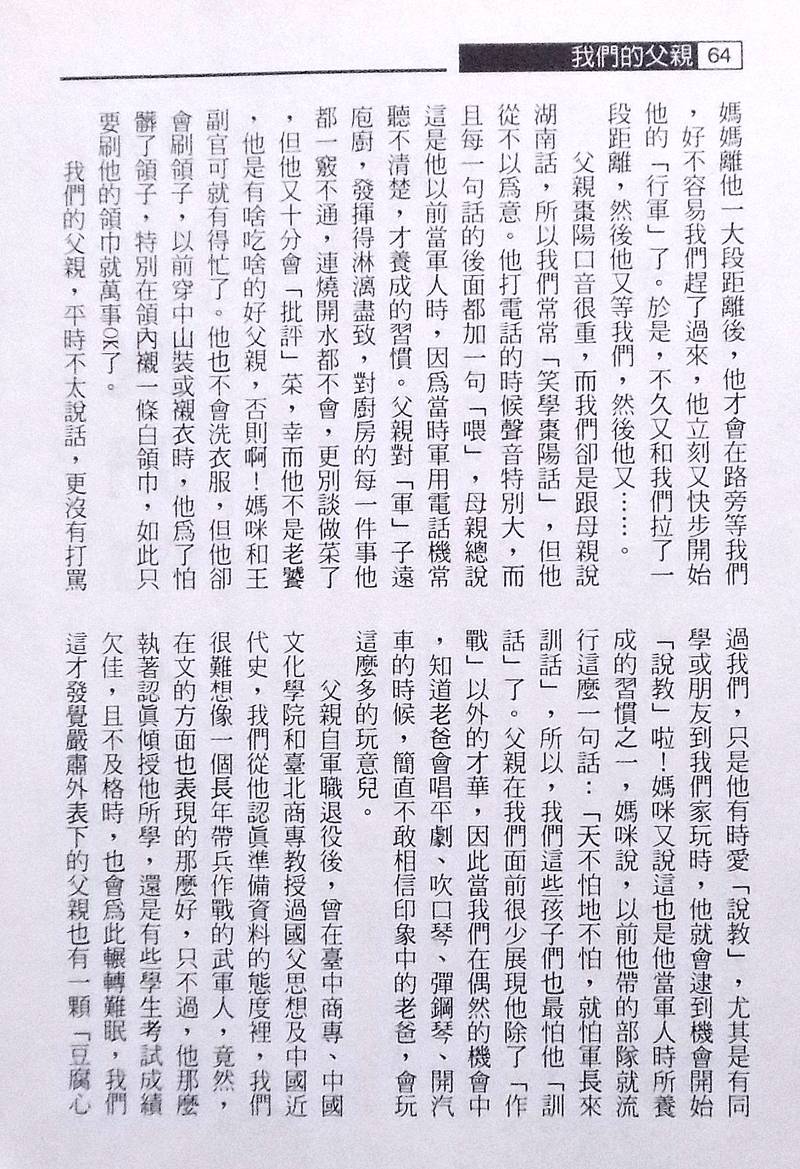 我們的父親 64
媽媽離他一大段距離後，他才會在路旁等我們
，好不容易我們趕了過來，他立刻又快步開始
他的「行軍」了。於是，不久又和我們拉了一
段距離，然後他又等我們，然後他又……。
父親棗陽口音很重，而我們卻是跟母親說
湖南話，所以我們常常「笑學棗陽話」，但他
從不以爲意。他打電話的時候聲音特別大，而
且每一句話的後面都加一句「喂」，母親總說
這是他以前當軍人時，因爲當時軍用電話機常
聽不清楚，才養成的習慣。父親對「軍」子遠
庖廚，發揮得淋漓盡致，對廚房的每一件事他
都一竅不通，連燒開水都不會，更別談做菜了
，但他又十分會「批評」菜，幸而他不是老饕
，他是有啥吃啥的好父親，否則啊！媽咪和王
副官可就有得忙了。他也不會洗衣服，但他卻
會刷領子，以前穿中山裝或襯衣時，他爲了怕
髒了領子，特別在領內襯一條白領巾，如此只
要刷他的領巾就萬事OK了。
我們的父親，平時不太說話，更沒有打罵
過我們，只是他有時愛「說教」，尤其是有同
學或朋友到我們家玩時，他就會逮到機會開始
「說教」啦！媽咪又說這也是他當軍人時所養
成的習慣之一，媽咪說，以前他帶的部隊就流
行這麼一句話：「天不怕地不怕，就怕軍長來
訓話」，所以，我們這些孩子們也最怕他「訓
話」了。父親在我們面前很少展現他除了「作
戰」以外的才華，因此當我們在偶然的機會中
，知道老爸會唱平劇、吹口琴、彈鋼琴、開汽
車的時候，簡直不敢相信印象中的老爸，會玩
這麼多的玩意兒。
父親自軍職退役後，曾在臺中商專、中國
文化學院和臺北商專教授過國父思想及中國近
代史，我們從他認眞準備資料的態度裡，我們
很難想像一個長年帶兵作戰的武軍人，竟然，
在文的方面也表現的那麼好，只不過，他那麼
執著認眞傾授他所學，還是有些學生考試成績
欠佳，且不及格時，也會爲此輾轉難眠，我們
這才發覺嚴肅外表下的父親也有一顆「豆腐心